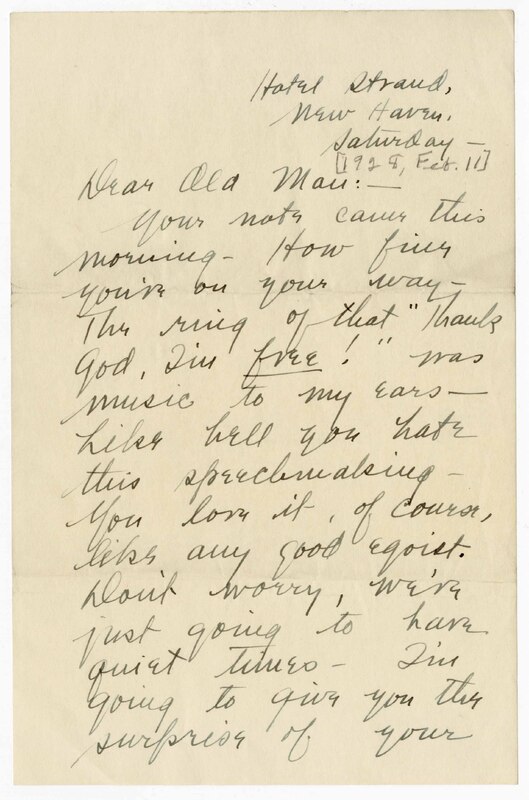 Hotel Strand,
New Haven.
Saturday —
[1928, Feb. 11]
Dear Old Man: —
Your note came this
morning - How fine
you're on your way -
The ring of that "Thank
God, I'm free!" was
music to my ears —
Like hell you hate
this speechmaking -
You love it, of course,
like any good egoist.
Don't worry, we're
just going to have
quiet times - I'm
going to give you the
surprise of your